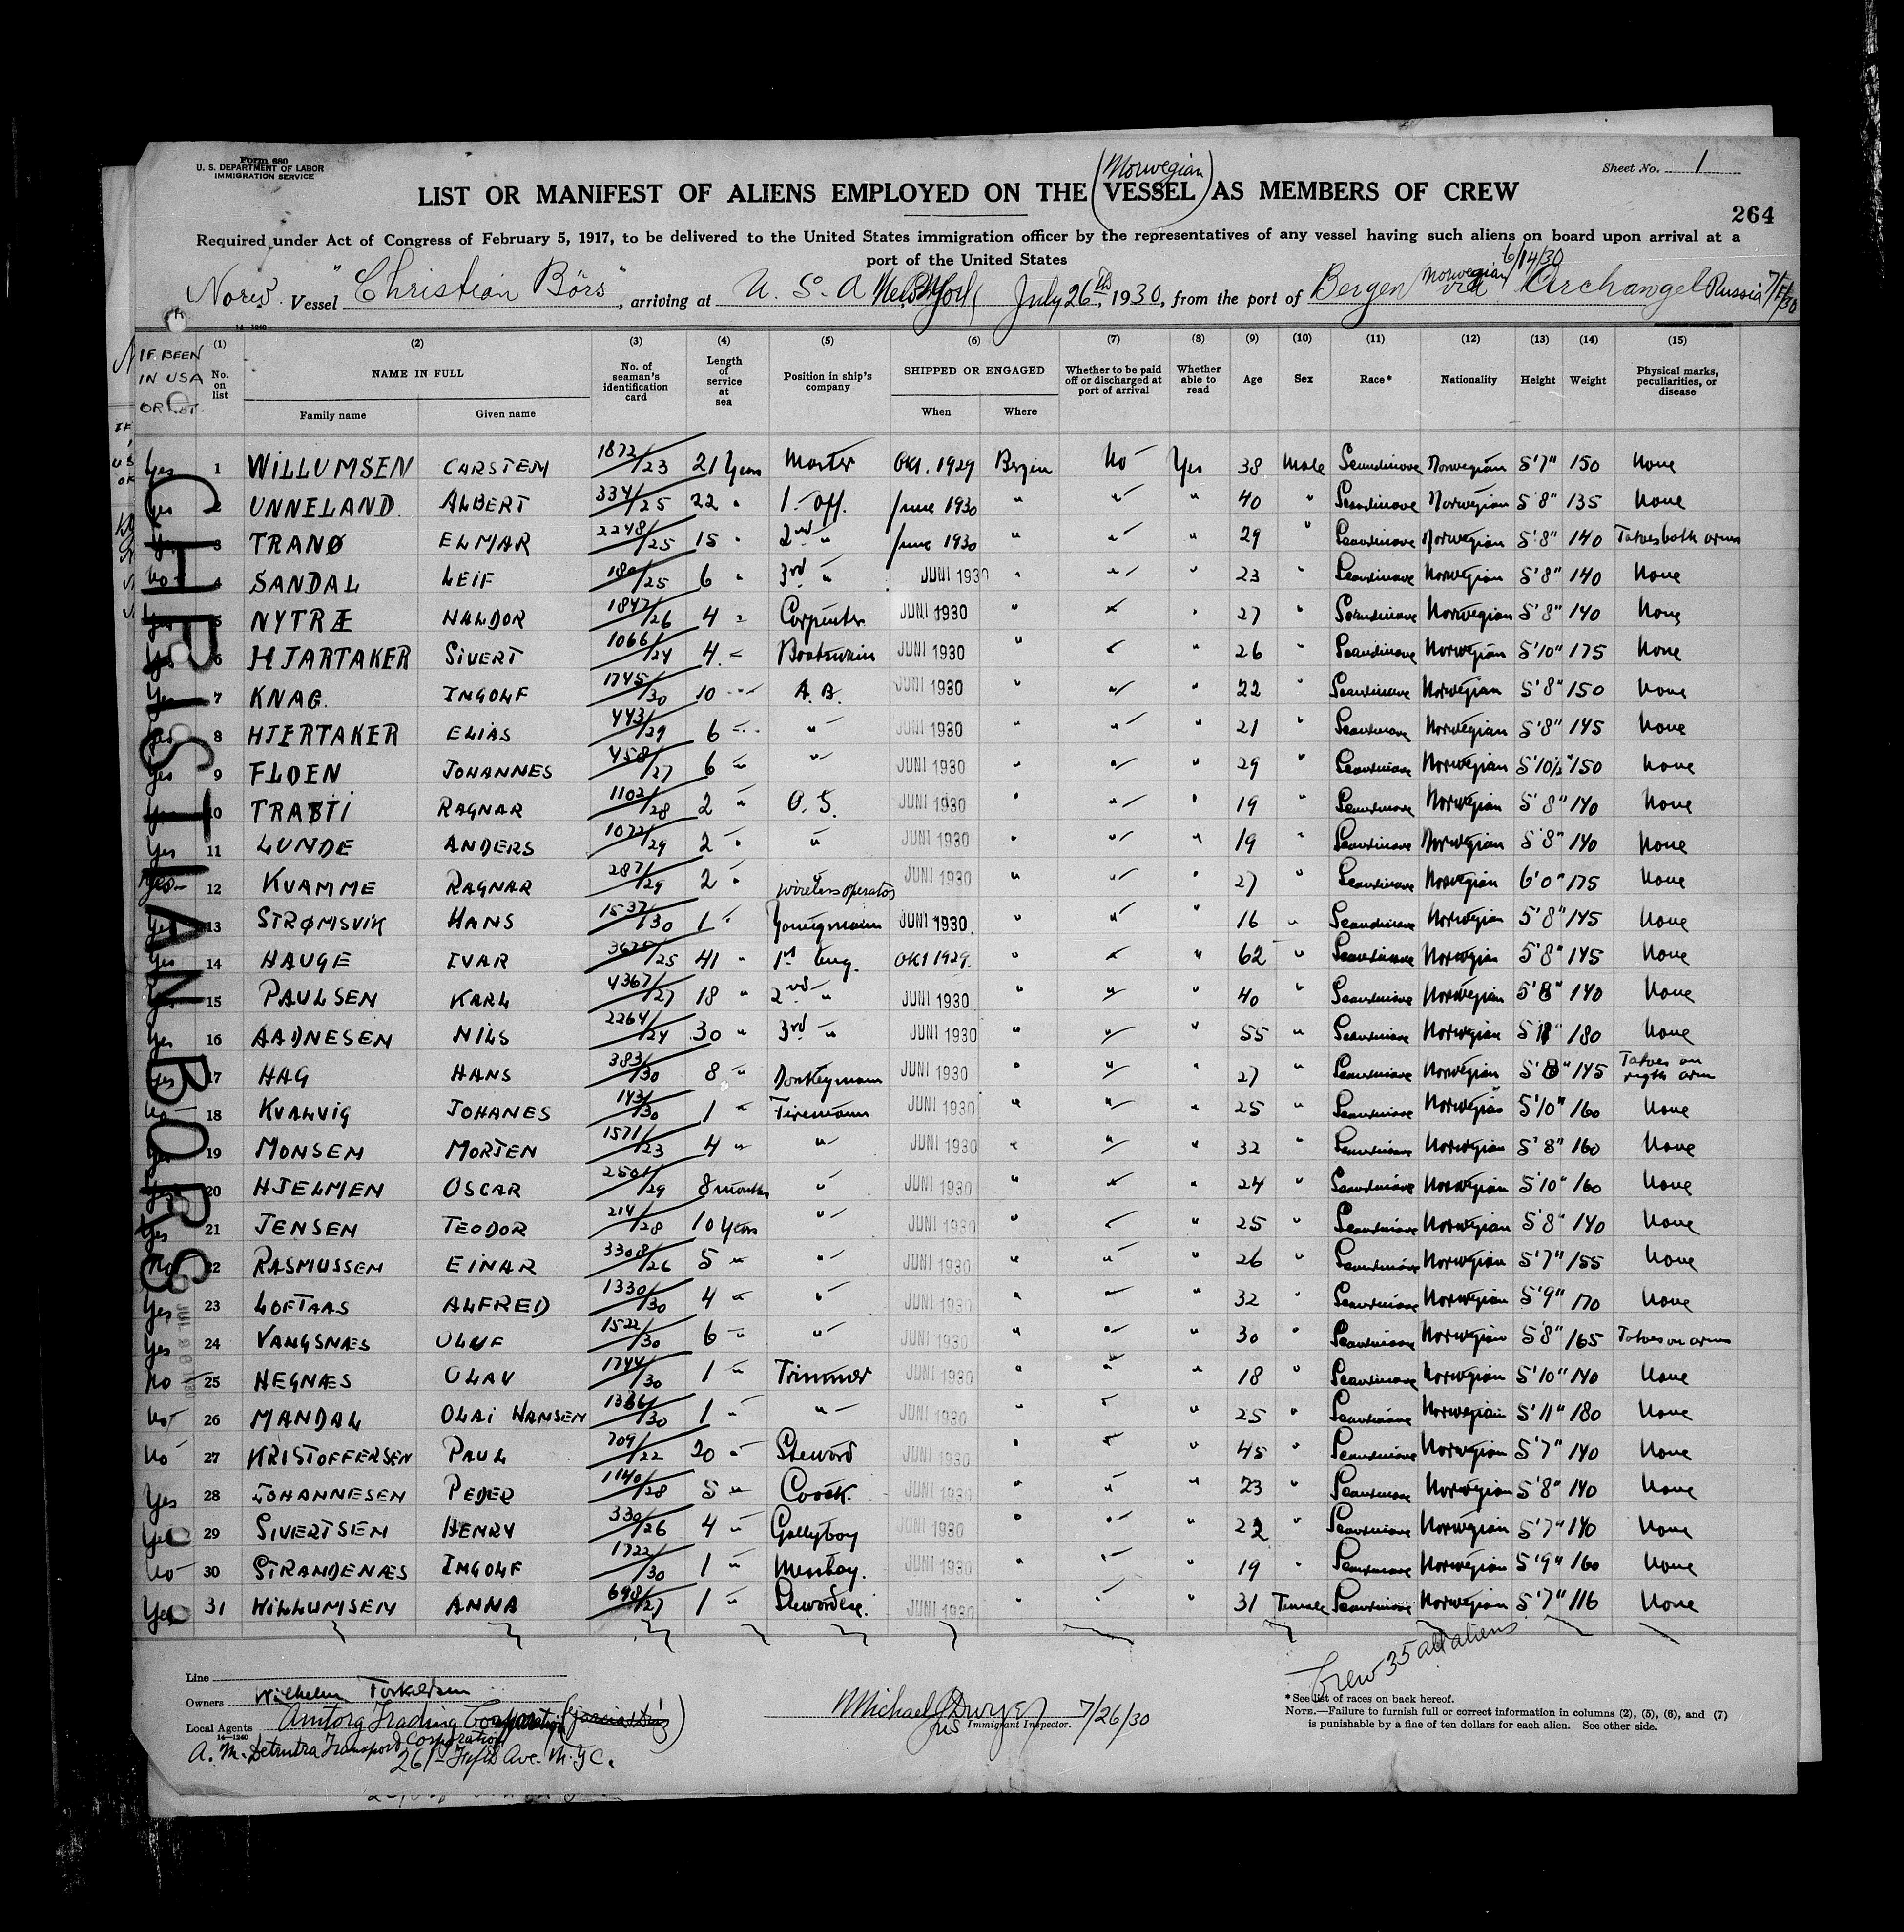 Form 680
U. S. DEPARTMENT OF LABOR
IMMIGRATION SERVICE
Sheet No. 1
(Norwegian)
LIST OR MANIFEST OF ALIENS EMPLOYED ON THE VESSEL AS MEMBERS OF CREW
264
Required under Act of Congress of February 5, 1917, to be delivered to the United States immigration officer by the representatives of any vessel having such aliens on board upon arrival at a
port of the United States
6/14/30
Norw. Vessel "Christian Börs", arriving at U. S. A New York July 26th, 1930, from the port of Bergen Norwegian via Archangel Russia
14-1240
IF BEEN IN USA OR NOT
(1) No. on list
(2) NAME IN FULL
Family name Given name
(3) No. of seaman's identification card
(4) Length of service at sea
(5) Position in ship's company
(6) SHIPPED OR ENGAGED
When Where
(7) Whether to be paid off or discharged at port of arrival
(8) Whether able to read
(9) Age
(10) Sex
(11) Race*
(12) Nationality
(13) Height
(14) Weight
(15) Physical marks, peculiarities, or disease
CHRISTIAN BORS
Yes 1 WILLUMSEN CARSTEN 1872/23 21 Years Master OKT. 1929 Bergen No Yes 38 Male Scandinave Norwegian 5'7" 150 None
Yes 2 UNNELAND ALBERT 334/25 22 " 1. Off. June 1930 " " " 40 " Scandinave Norwegian 5'8" 135 None
3 TRANØ ELMAR 2248/25 15 " 2nd " June 1930 " " " 29 " Scandinave Norwegian 5'8" 140 Tatoes both arms
No 4 SANDAL LEIF 180/25 6 " 3rd " JUNI 1930 " " " 23 " Scandinave Norwegian 5'8" 140 None
Yes 5 NYTRÆ HALDOR 1847/26 4 " Carpenter JUNI 1930 " " " 27 " Scandinave Norwegian 5'8" 140 None
Yes 6 HJARTAKER SIVERT 1066/24 4 " Boatswain JUNI 1930 " " " 26 " Scandinave Norwegian 5'10" 175 None
Yes 7 KNAG INGOLF 1745/30 10 " A. B. JUNI 1930 " " " 22 " Scandinave Norwegian 5'8" 150 None
Yes 8 HJERTAKER ELIAS 443/29 6 " " JUNI 1930 " " " 21 " Scandinave Norwegian 5'8" 145 None
Yes 9 FLOEN JOHANNES 458/27 6 " " JUNI 1930 " " " 29 " Scandinave Norwegian 5'10½" 150 None
10 TRATTI RAGNAR 1102/28 2 " O. S. JUNI 1930 " " " 19 " Scandinave Norwegian 5'8" 140 None
Yes 11 LUNDE ANDERS 1072/29 2 " " JUNI 1930 " " " 19 " Scandinave Norwegian 5'8" 140 None
12 KVAMME RAGNAR 287/29 2 " wireless operator JUNI 1930 " " " 27 " Scandinave Norwegian 6'0" 175 None
Yes 13 STRØMSVIK HANS 1537/30 1 " Youngmann JUNI 1930 " " " 16 " Scandinave Norwegian 5'8" 145 None
Yes 14 HAUGE IVAR 3625/25 41 " 1st Eng. OKT 1929 " " " 62 " Scandinave Norwegian 5'8" 145 None
15 PAULSEN KARL 4367/27 18 " 2nd " JUNI 1930 " " " 40 " Scandinave Norwegian 5'8" 140 None
Yes 16 AADNESEN NILS 2264/24 30 " 3rd " JUNI 1930 " " " 55 " Scandinave Norwegian 180 None
Yes 17 HAG HANS 383/30 8 " Donkeymann JUNI 1930 " " " 27 " Scandinave Norwegian 5'8" 145 Tatoes on rigth arm
No 18 KVALVIG JOHANES 143/30 1 " Firemann JUNI 1930 " " " 25 " Scandinave Norwegian 5'10" 160 None
19 MONSEN MORTEN 1571/23 4 " " JUNI 1930 " " " 32 " Scandinave Norwegian 5'8" 160 None
20 HJELMEN OSCAR 2501/29 8 months " JUNI 1930 " " " 24 " Scandinave Norwegian 5'10" 160 None
Yes 21 JENSEN TEODOR 214/28 10 Years " JUNI 1930 " " " 25 " Scandinave Norwegian 5'8" 140 None
No 22 RASMUSSEN EINAR 3308/26 5 " " JUNI 1930 " " " 26 " Scandinave Norwegian 5'7" 155 None
Yes 23 LOFTAAS ALFRED 1330/30 4 " " JUNI 1930 " " " 32 " Scandinave Norwegian 5'9" 170 None
Yes 24 VANGSNÆS OLUF 1522/30 6 " " JUNI 1930 " " " 30 " Scandinave Norwegian 5'8" 165 Tatoes on arms
No 25 HEGNÆS OLAV 1744/30 1 " Trimmer JUNI 1930 " " " 18 " Scandinave Norwegian 5'10" 140 None
No 26 MANDAL OLAI HANSEN 1386/30 1 " " JUNI 1930 " " " 25 " Scandinave Norwegian 5'11" 180 None
No 27 KRISTOFFERSEN PAUL 709/22 20 " Steword JUNI 1930 " " " 45 " Scandinave Norwegian 5'7" 140 None
Yes 28 JOHANNESEN PEDER 1140/28 5 " Coock. JUNI 1930 " " " 23 " Scandinave Norwegian 5'8" 140 None
Yes 29 SIVERTSEN HENRY 330/26 4 " Gallyboy JUNI 1930 " " " 22 " Scandinave Norwegian 5'7" 140 None
No 30 STRANDENÆS INGOLF 1722/30 1 " Messboy. JUNI 1930 " " " 19 " Scandinave Norwegian 5'9" 160 None
Yes 31 WILLUMSEN ANNA 698/27 1 " Stewordese. JUNI 1930 " " " 31 Female Scandinave Norwegian 5'7" 116 None
Crew 35 all aliens
Line
Owners Wilhelm Torkildsen
Local Agents Amtorg Trading Corporation
14-1240
A. M. Detrutra Transport Corporation
261 Fifth Ave. N.Y.C.
Michael Dwyer 7/26/30
Immigrant Inspector.
*See list of races on back hereof.
NOTE.—Failure to furnish full or correct information in columns (2), (5), (6), and (7)
is punishable by a fine of ten dollars for each alien. See other side.